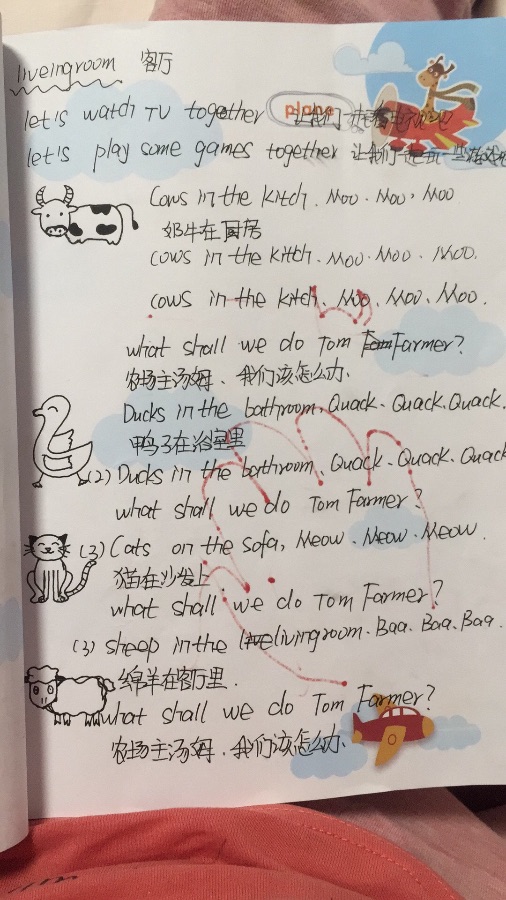 liveingroom 客厅
let's watch TV together 让我们一起看电视吧
plane
let's play some games together 让我们一起玩一些游戏吧
Cows in the kitch. Moo. Moo, Moo
奶牛在厨房
cows in the kitch. Moo. Moo. Moo.
cows in the kitch, Moo, Moo, Moo.
what shall we do Tom Farmer?
农场主汤姆、我们该怎么办、
Ducks in the bathroom, Quack. Quack. Quack.
鸭子在浴室里
(2) Ducks in the bathroom, Quack. Quack. Quack
what shall we do Tom Farmer?
(3) Cats on the sofa, Meow. Meow. Meow.
猫在沙发上
what shall we do Tom Farmer?
(3) sheep in the livingroom. Baa. Baa. Baa.
绵羊在客厅里.
what shall we do Tom Farmer?
农场主汤姆、我们该怎么办、